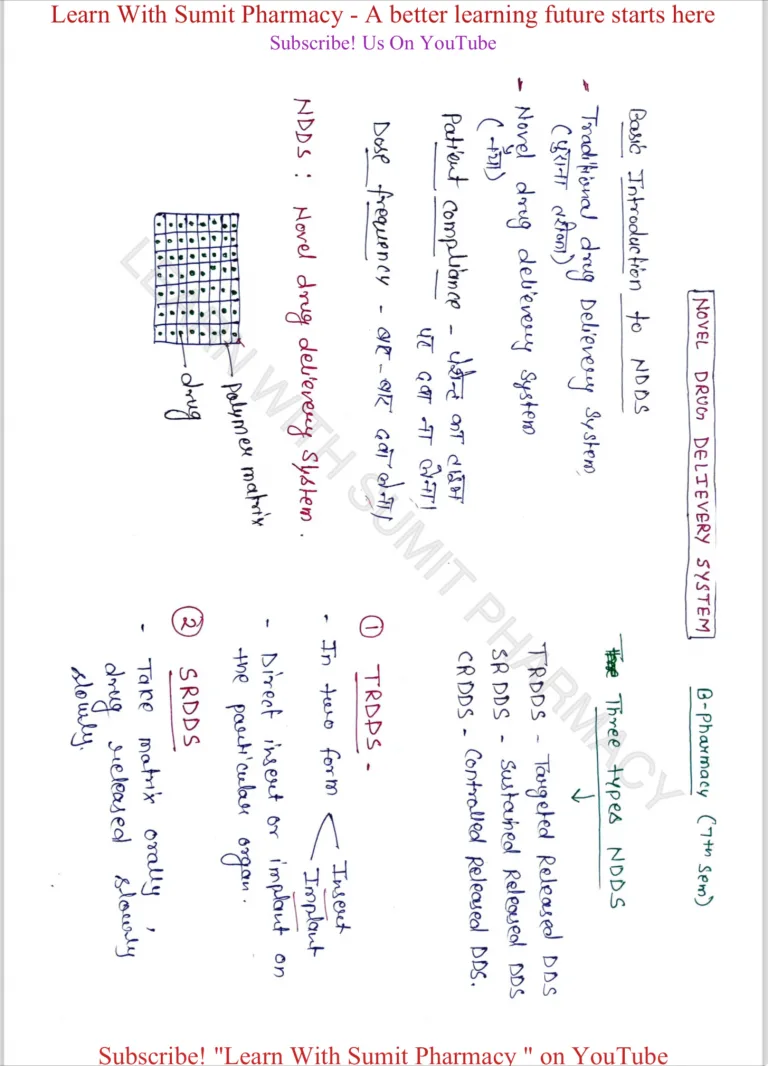 Learn With Sumit Pharmacy - A better learning future starts here
Subscribe! Us On YouTube
NOVEL DRUG DELIEVERY SYSTEM
B-Pharmacy (7th sem)
Basic Introduction to NDDS
- Traditional drug Delievery System
(पुराना तरीका)
- Novel drug delievery System
(नया)
Patient Compliance - पेशेन्ट का टाइम
पर दवा ना लेना।
Dose frequency - बार-बार दवा लेना।
NDDS : Novel drug delievery System.
polymer matrix
drug
Three types NDDS
TRDDS - Targeted Released DDS
SRDDS - Sustained Released DDS
CRDDS - Controlled Released DDS.
① TRDDS -
- In two form
Insert
Implant
- Direct insert or implant on
the particular organ.
② SRDDS
- Take matrix orally,
drug released slowly
slowly.
LEARN WITH SUMIT PHARMACY
Subscribe! "Learn With Sumit Pharmacy " on YouTube